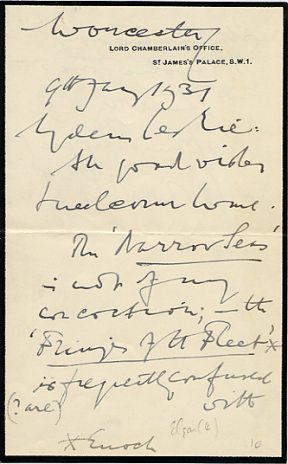 Worcester
LORD CHAMBERLAIN'S OFFICE,
ST JAMES'S PALACE, S.W.1.
9th Jany 1931
My dear Leslie:
All good wishes
& welcome home.
The 'Narrow Seas'
is not of my
concoction; — the
'Fringes of the Fleet' x
is frequently confused
(? are) with
x Enoch
Elgar (E)
10